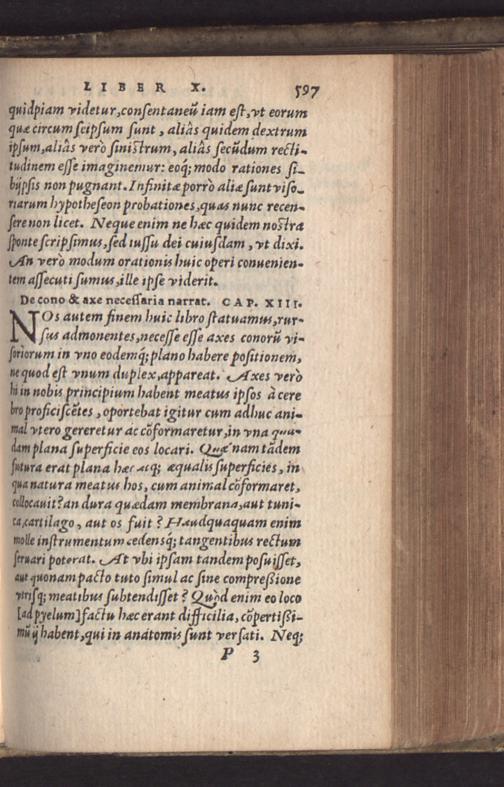 LIBER X. 597
quidpiam videtur, consentaneũ iam est, vt eorum
quæ circum seipsum sunt, aliàs quidem dextrum
ipsum, aliâs verò sinistrum, aliâs secũdum recti-
tudinem esse imaginemur: eoq; modo rationes si-
bijpsis non pugnant. Infinitæ porrò aliæ sunt viso-
riarum hypotheseon probationes, quas nunc recen-
sere non licet. Neque enim ne hæc quidem nostra
sponte scripsimus, sed iussu dei cuiusdam, vt dixi.
An verò modum orationis huic operi conuenien-
tem assecuti simus, ille ipse viderit.
De cono & axe necessaria narrat. CAP. XIII.
NOs autem finem huic libro statuamus, rur-
sus admonentes, necesse esse axes conorũ vi-
soriorum in vno eodemq; plano habere positionem,
ne quod est vnum duplex, appareat. Axes verò
hi in nobis principium habent meatus ipsos à cere
bro proficiscẽtes, oportebat igitur cum adhuc ani-
mal vtero gereretur ac cõformaretur, in vna qua-
dam plana superficie eos locari. Quænam tãdem
futura erat plana hæc acq; æqualis superficies, in
qua natura meatus hos, cum animal cõformaret,
collocauit? an dura quædam membrana, aut tuni-
ca, cartilago, aut os fuit? Haudquaquam enim
molle instrumentum cedensq; tangentibus rectum
seruari poterat. At vbi ipsam tandem posuisset,
aut quonam pacto tuto simul ac sine compreßione
vtrisq; meatibus subtendisset? Quòd enim eo loco
[ad pyelum] factu hæc erant difficilia, cõpertißi-
mũ ij habent, qui in anatomis sunt versati. Neq;
P 3